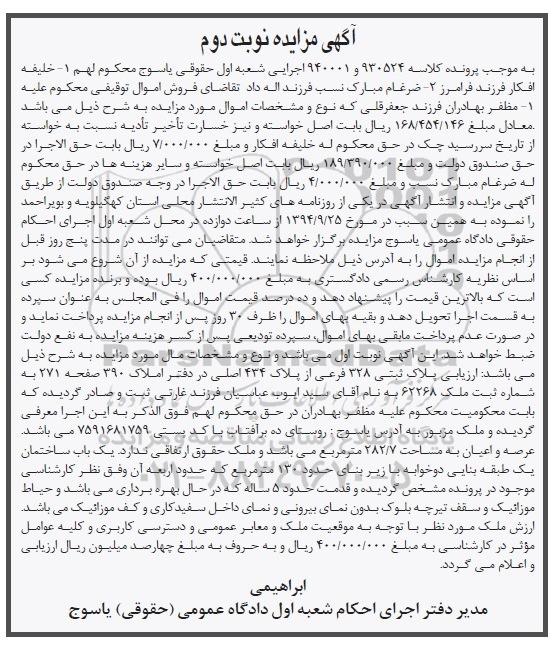 آگهی مزایده نوبت دوم
به موجب پرونده کلاسه ۹۳۰۵۲۴ و ۹۴۰۰۰۱ اجرایی شعبه اول حقوقی یاسوج محکوم لهم ۱- خلیفه
افکار فرزند فرامرز ۲- ضرغام مبارک نسب فرزند اله داد تقاضای فروش اموال توقیفی محکوم علیه
۱- مظفر بهادران فرزند جعفرقلی که نوع و مشخصات اموال مورد مزایده به شرح ذیل می باشد
.معادل مبلغ ۱۶۸/۴۵۴/۱۴۶ ریال بابت اصل خواسته و نیز خسارت تأخیر تأدیه نسبت به خواسته
از تاریخ سررسید چک در حق محکوم له خلیفه افکار و مبلغ ۷/۰۰۰/۰۰۰ ریال بابت حق الاجرا در
حق صندوق دولت و مبلغ ۱۸۹/۳۹۰/۰۰۰ ریال بابت اصل خواسته و سایر هزینه ها در حق محکوم
له ضرغام مبارک نسب و مبلغ ۴/۰۰۰/۰۰۰ ریال بابت حق الاجرا در وجه صندوق دولت از طریق
آگهی مزایده و انتشار آگهی در یکی از روزنامه های کثیر الانتشار محلی استان کهگیلویه و بویراحمد
را نموده به همین سبب در مورخ ۱۳۹۴/۹/۲۵ از ساعت دوازده در محل شعبه اول اجرای احکام
حقوقی دادگاه عمومی یاسوج مزایده برگزار خواهد شد. متقاضیان می توانند در مدت پنج روز قبل
از انجام مزایده اموال را به آدرس ذیل ملاحظه نمایند. قیمتی که مزایده از آن شروع می شود بر
اساس نظریه کارشناس رسمی دادگستری به مبلغ ۴۰۰/۰۰۰/۰۰۰ ریال بوده و برنده مزایده کسی
است که بالاترین قیمت را پیشنهاد دهد و ده درصد قیمت اموال را فی المجلس به عنوان سپرده
به قسمت اجرا تحویل دهد و بقیه بهای اموال را ظرف ۳۰ روز پس از انجام مزایده پرداخت نماید و
در صورت عدم پرداخت مابقی بهای اموال، سپرده تودیعی پس از کسر هزینه مزایده به نفع دولت
ضبط خواهد شد. این آگهی نوبت اول می باشد و نوع و مشخصات مال مورد مزایده به شرح ذیل
می باشد: ارزیابی پلاک ثبتی ۳۲۸ فرعی از پلاک ۴۳۴ اصلی در دفتر املاک ۳۹۰ صفحه ۲۷۱ به
شماره ثبت ملک ۶۲۲۶۸ به نام آقای سید ایوب عباسیان فرزند غارتی ثبت و صادر گردیده که
بابت محکومیت محکوم علیه مظفر بهادران در حق محکوم لهم فوق الذکر به این اجرا معرفی
گردیده و ملک مزبور به آدرس یاسوج : روستای ده برآفتاب با کد پستی ۷۵۹۱۶۸۱۷۵۹ می باشد.
عرصه و اعیان به مساحت ۲۸۲/۷ مترمربع می باشد و ملک حقوق ارتفاقی ندارد. یک باب ساختمان
یک طبقه بنایی دوخوابه با زیر بنای حدود ۱۳۰ مترمربع که حدود اربعه آن وفق نظر کارشناسی
موجود در پرونده مشخص گردیده و قدمت حدود ۵ ساله که در حال بهره برداری می باشد و حیاط
موزائیک و سقف تیرچه بلوک بدون نمای بیرونی و نمای داخل سفیدکاری و کف موزائیک می باشد.
ارزش ملک مورد نظر با توجه به موقعیت ملک و معابر عمومی و دسترسی کاربری و کلیه عوامل
مؤثر در کارشناسی به مبلغ ۴۰۰/۰۰۰/۰۰۰ ریال و به حروف به مبلغ چهارصد میلیون ریال ارزیابی
و اعلام می گردد.
ابراهیمی
مدیر دفتر اجرای احکام شعبه اول دادگاه عمومی (حقوقی) یاسوج